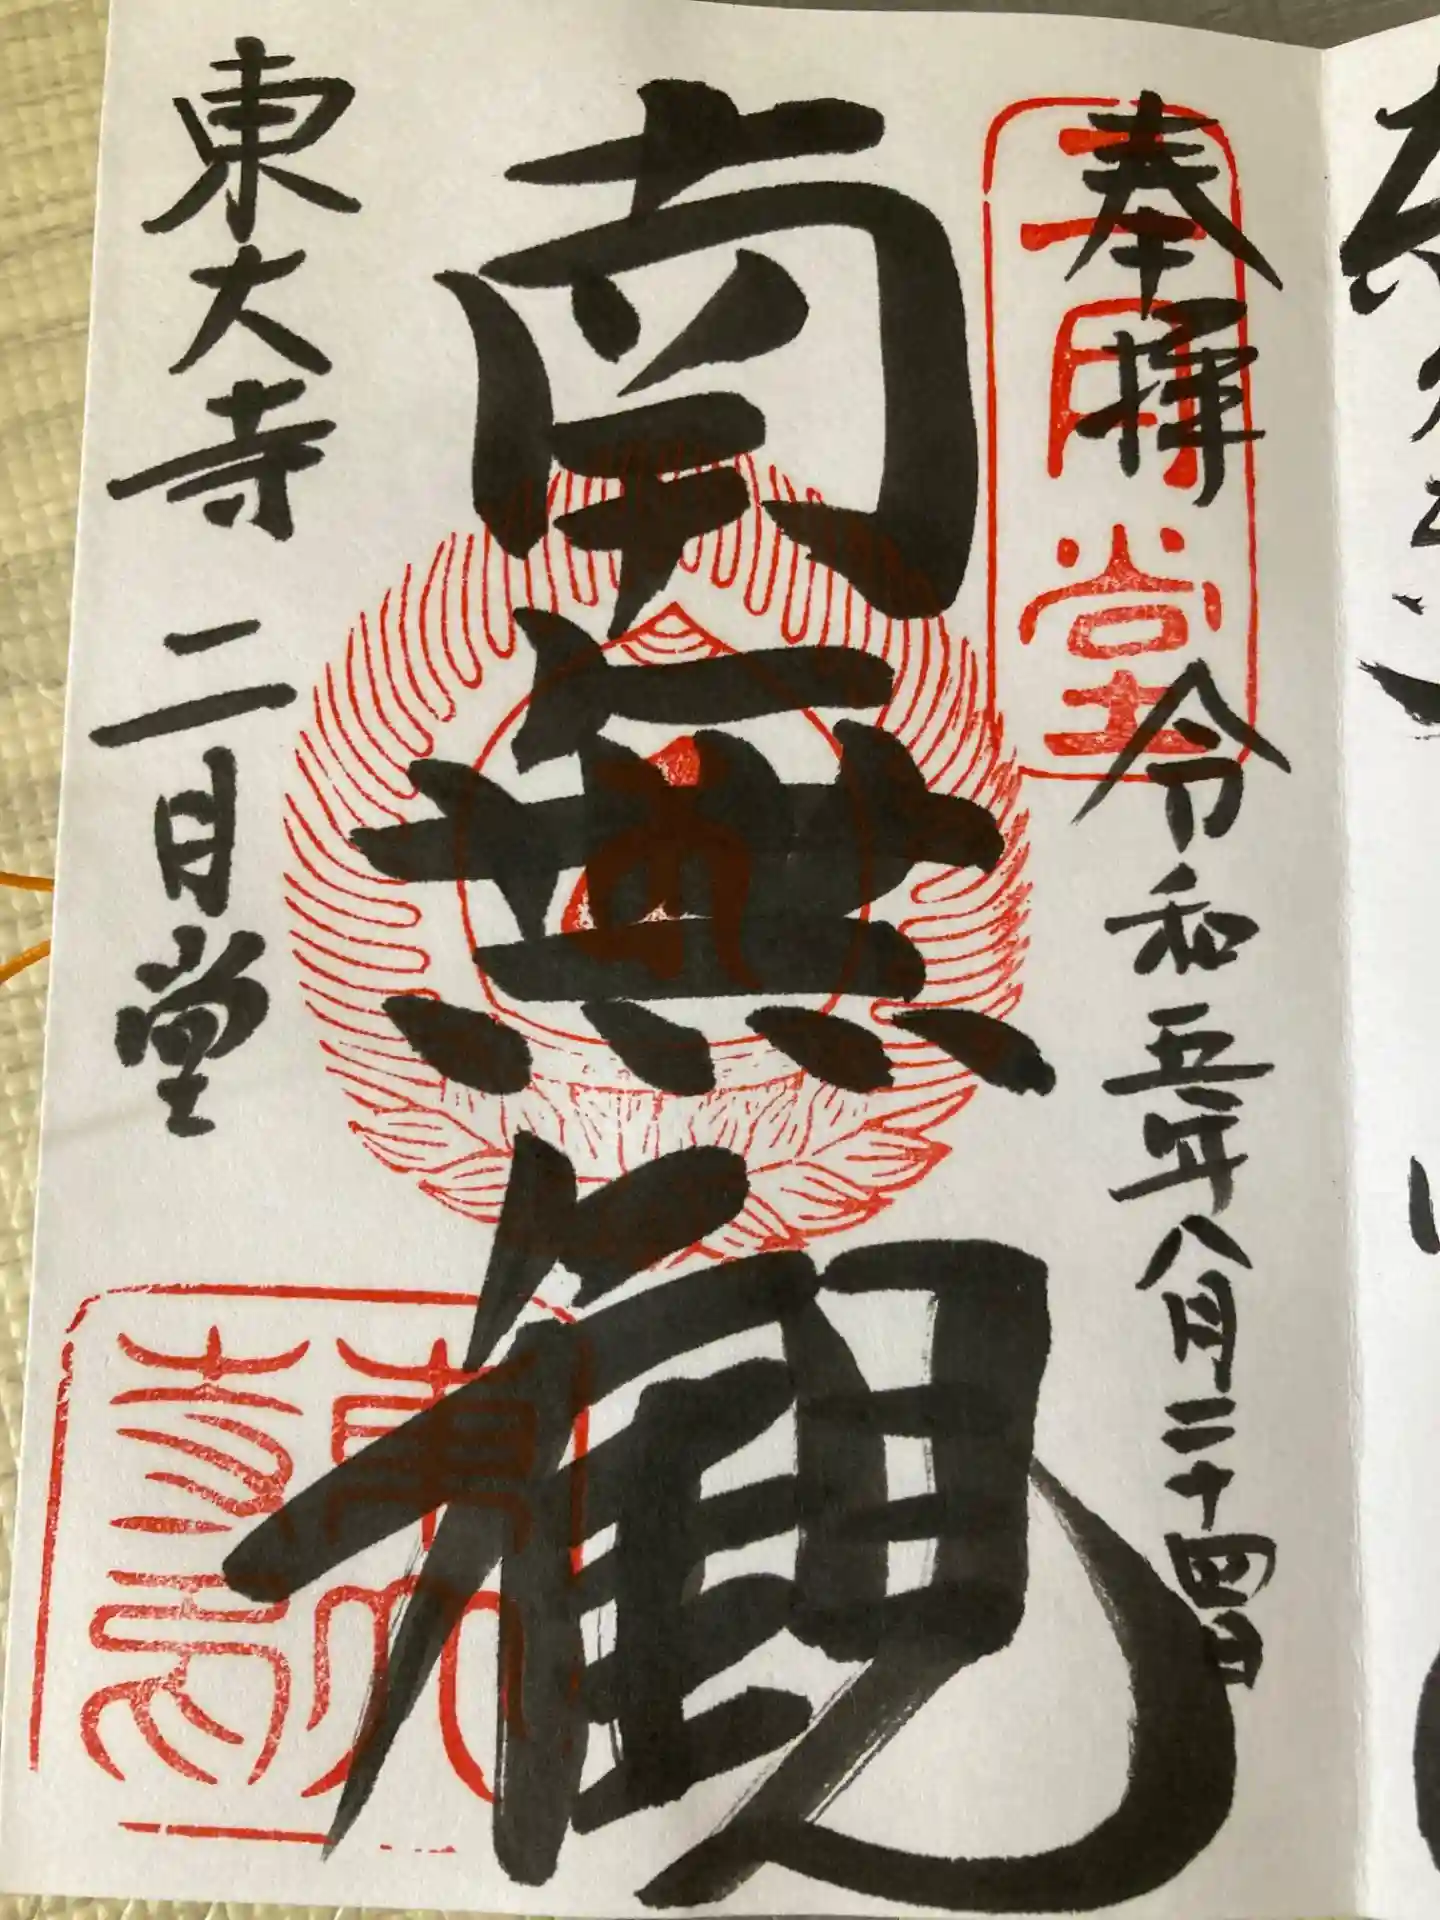 奉拝 令和五年八月二十四日
二月堂
南無観
東大寺 二月堂